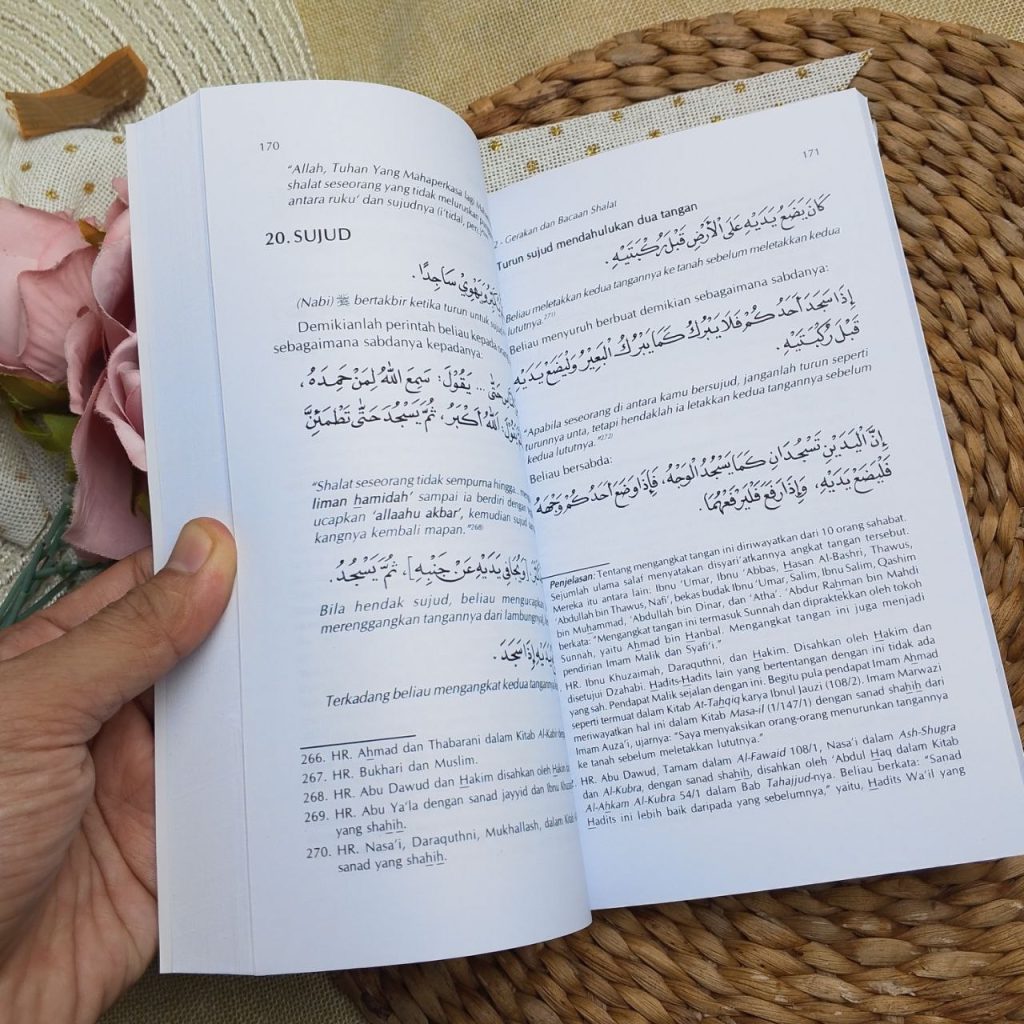 170
"Allah, Tuhan Yang Mahaperkasa lagi
shalat seseorang yang tidak meluruskan
antara ruku' dan sujudnya (i'tidal,
20. SUJUD
وَيَهْوِيْ سَاجِدًا.
(Nabi) ﷺ bertakbir ketika turun untuk
Demikianlah perintah beliau kepada
sebagaimana sabdanya kepadanya:
حَتَّى ... يَقُوْلَ: سَمِعَ اللهُ لِمَنْ حَمِدَهُ،
اَللهُ أَكْبَرُ، ثُمَّ يَسْجُدَ حَتَّى تَطْمَئِنَّ
"Shalat seseorang tidak sempurna hingga...
liman hamidah' sampai ia berdiri dengan
ucapkan 'allaahu akbar', kemudian sujud
kangnya kembali mapan."268)
[وَيُجَافِي يَدَيْهِ عَنْ جَنْبِهِ]، ثُمَّ يَسْجُدُ.
Bila hendak sujud, beliau mengucapkan
merenggangkan tangannya dari lambungnya,
يَدَيْهِ إِذَا سَجَدَ.
Terkadang beliau mengangkat kedua tangannya
266. HR. Ahmad dan Thabarani dalam Kitab Al-Kabir
267. HR. Bukhari dan Muslim.
268. HR. Abu Dawud dan Hakim disahkan oleh Hakim
269. HR. Abu Ya'la dengan sanad jayyid dan Ibnu
yang shahih.
270. HR. Nasa'i, Daraquthni, Mukhallash, dalam Kitab
sanad yang shahih.
171
2 - Gerakan dan Bacaan Shalat
Turun sujud mendahulukan dua tangan
كَانَ يَضَعُ يَدَيْهِ عَلَى الْأَرْضِ قَبْلَ رُكْبَتَيْهِ.
Beliau meletakkan kedua tangannya ke tanah sebelum meletakkan kedua
lututnya.271)
Beliau menyuruh berbuat demikian sebagaimana sabdanya:
إِذَا سَجَدَ أَحَدُكُمْ فَلَا يَبْرُكْ كَمَا يَبْرُكُ الْبَعِيْرُ وَلْيَضَعْ يَدَيْهِ
قَبْلَ رُكْبَتَيْهِ.
"Apabila seseorang di antara kamu bersujud, janganlah turun seperti
turunnya unta, tetapi hendaklah ia letakkan kedua tangannya sebelum
kedua lututnya."272)
Beliau bersabda:
إِنَّ الْيَدَيْنِ تَسْجُدَانِ كَمَا يَسْجُدُ الْوَجْهُ، فَإِذَا وَضَعَ أَحَدُكُمْ وَجْهَهُ
فَلْيَضَعْ يَدَيْهِ، وَإِذَا رَفَعَ فَلْيَرْفَعْهُمَا.
Penjelasan: Tentang mengangkat tangan ini diriwayatkan dari 10 orang sahabat.
Sejumlah ulama salaf menyatakan disyari'atkannya angkat tangan tersebut.
Mereka itu antara lain: Ibnu 'Umar, Ibnu 'Abbas, Hasan Al-Bashri, Thawus,
'Abdullah bin Thawus, Nafi', bekas budak Ibnu 'Umar, Salim, Ibnu Salim, Qashim
bin Muhammad, 'Abdullah bin Dinar, dan 'Atha'. 'Abdur Rahman bin Mahdi
berkata: "Mengangkat tangan ini termasuk Sunnah dan dipraktekkan oleh tokoh
Sunnah, yaitu Ahmad bin Hanbal. Mengangkat tangan ini juga menjadi
pendirian Imam Malik dan Syafi'i."
HR. Ibnu Khuzaimah, Daraquthni, dan Hakim. Disahkan oleh Hakim dan
disetujui Dzahabi. Hadits-Hadits lain yang bertentangan dengan ini tidak ada
yang sah. Pendapat Malik sejalan dengan ini. Begitu pula pendapat Imam Ahmad
seperti termuat dalam Kitab At-Tahqiq karya Ibnul Jauzi (108/2). Imam Marwazi
meriwayatkan hal ini dalam Kitab Masa-il (1/147/1) dengan sanad shahih dari
Imam Auza'i, ujarnya: "Saya menyaksikan orang-orang menurunkan tangannya
ke tanah sebelum meletakkan lututnya."
HR. Abu Dawud, Tamam dalam Al-Fawaid 108/1, Nasa'i dalam Ash-Shugra
dan Al-Kubra, dengan sanad shahih, disahkan oleh 'Abdul Haq dalam Kitab
Al-Ahkam Al-Kubra 54/1 dalam Bab Tahajjud-nya. Beliau berkata: "Sanad
Hadits ini lebih baik daripada yang sebelumnya," yaitu, Hadits Wa'il yang